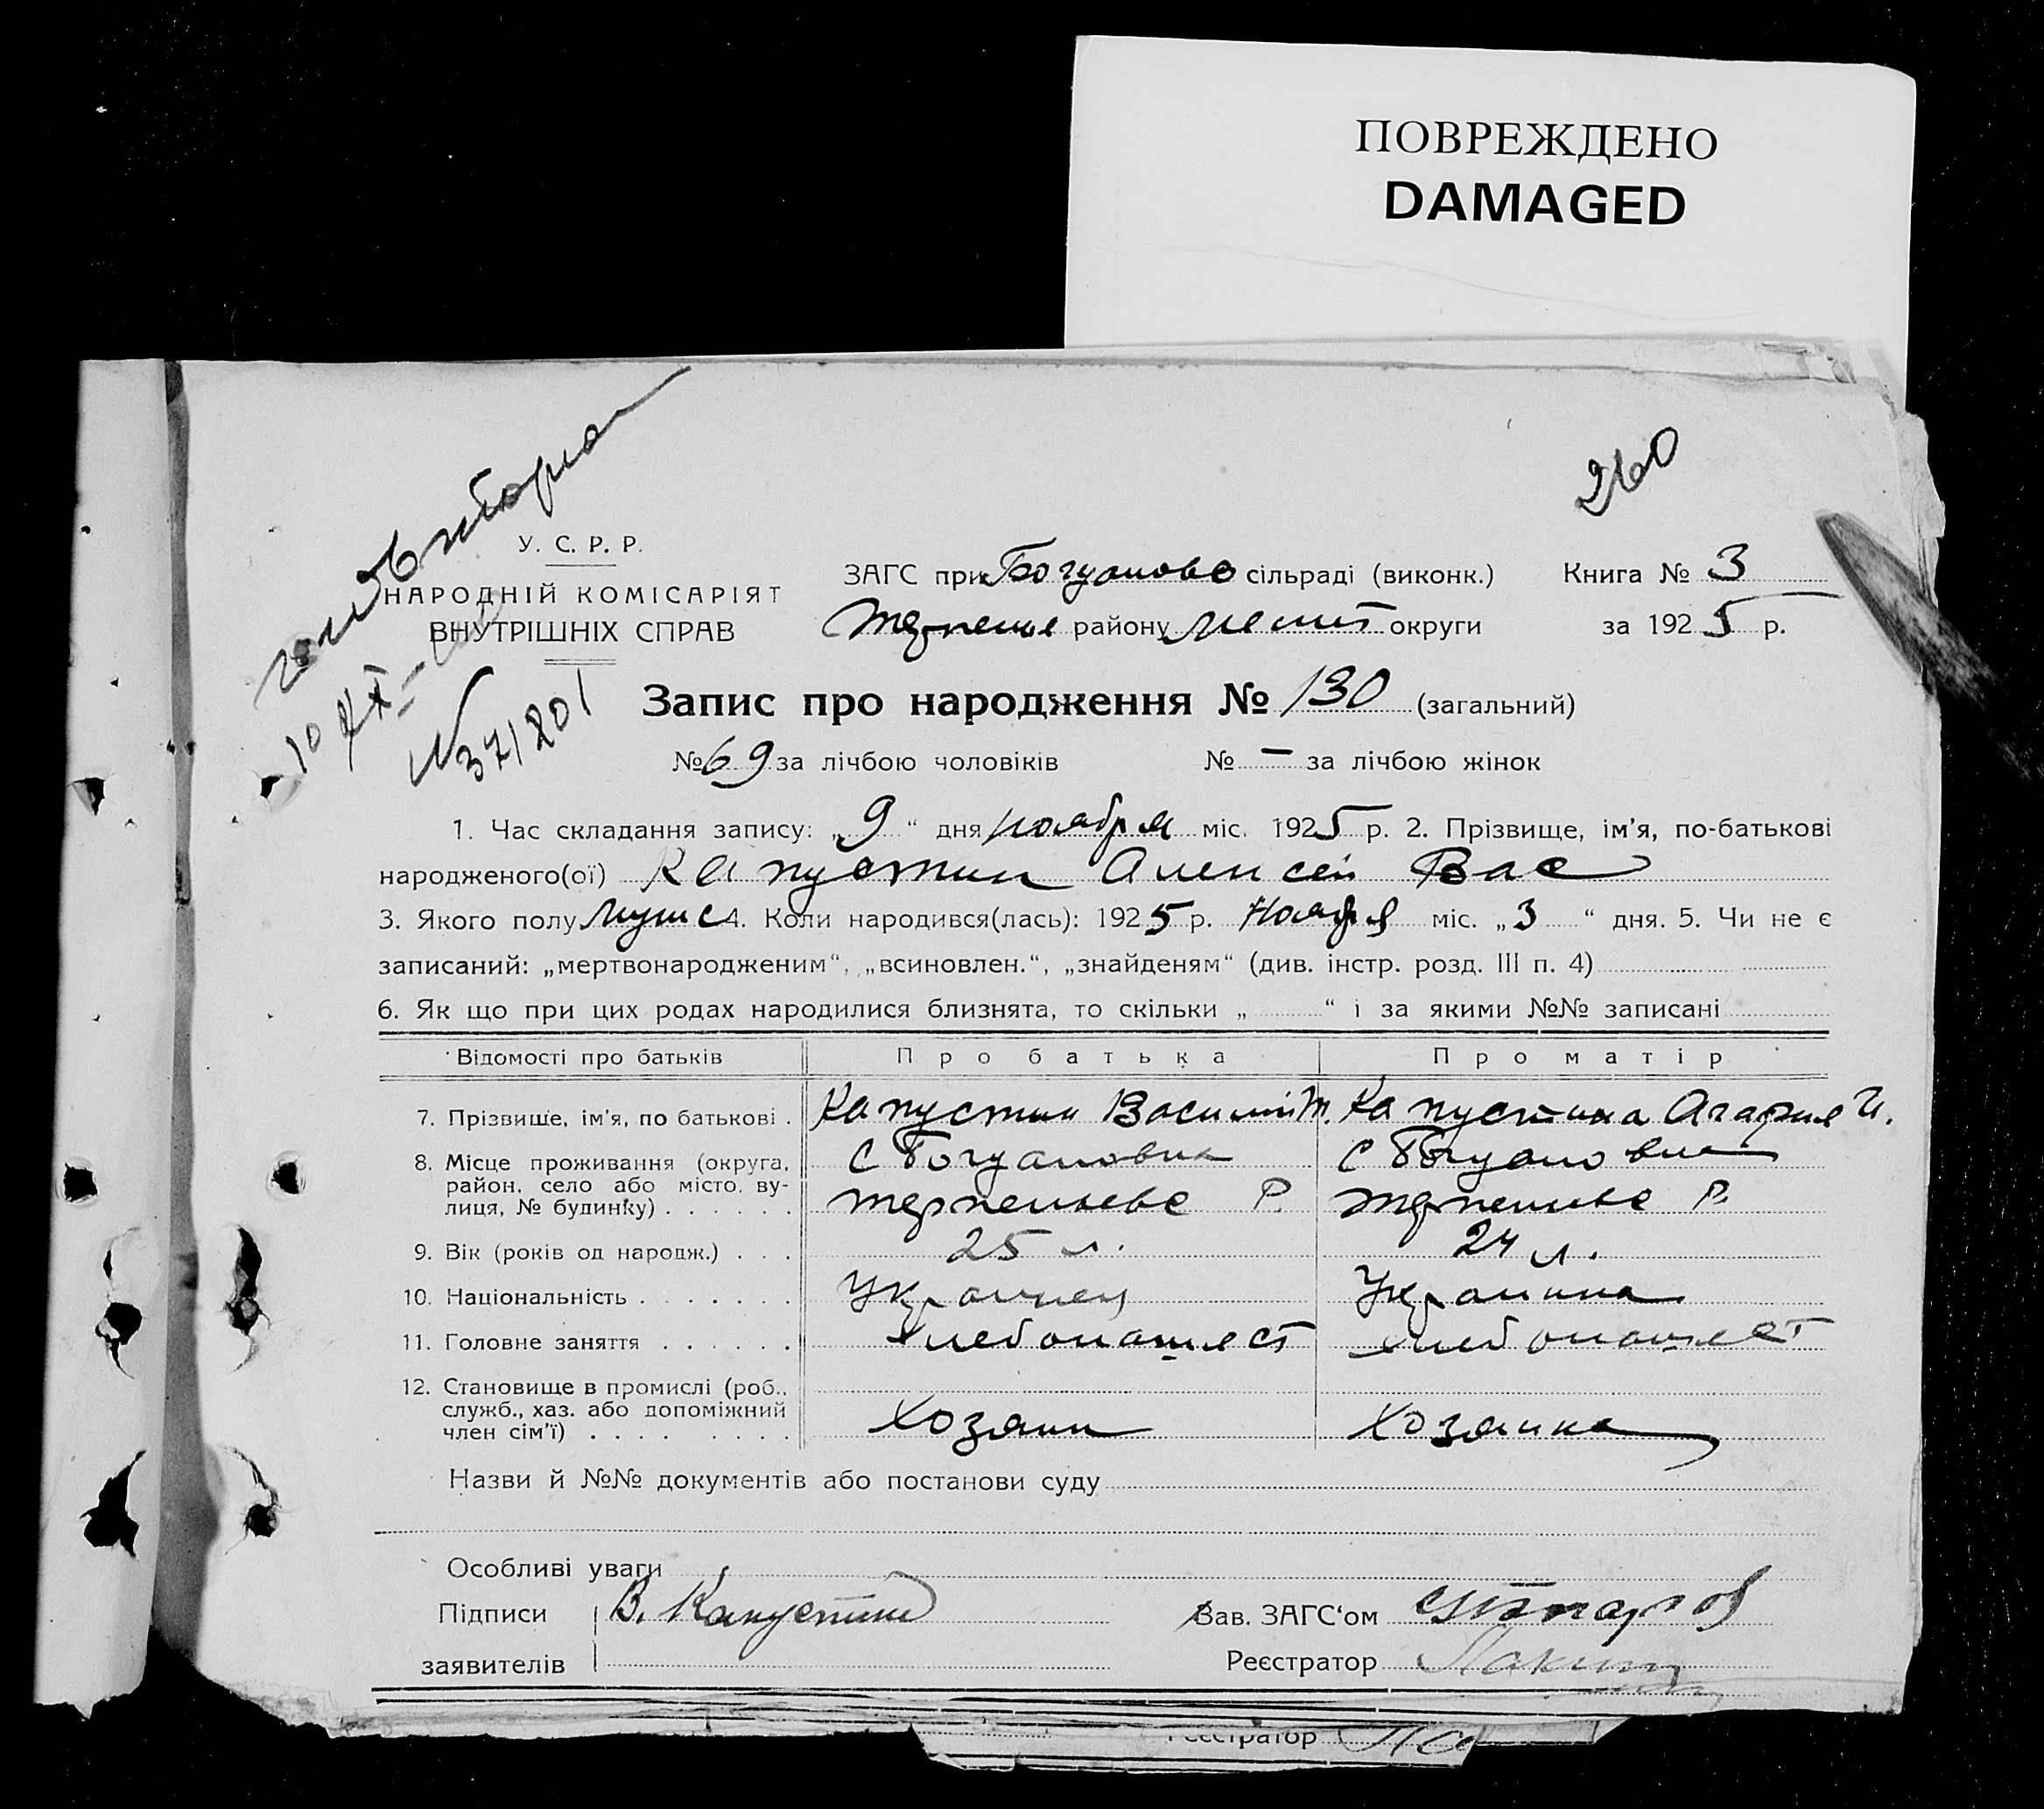 ПОВРЕЖДЕНО
DAMAGED
260
У. С. Р. Р.
НАРОДНІЙ КОМІСАРІЯТ
ВНУТРІШНІХ СПРАВ
№ 371201
ЗАГС при Богдановс сільраді (виконк.) Книга № 3
району Мелит округи за 1925 р.
Запис про народження № 130 (загальний)
№ 69 за лічбою чоловіків № — за лічбою жінок
1. Час складання запису: „9“ дня ноября міс. 1925 р. 2. Прізвище, ім'я, по-батькові
народженого(ої) Капустин Алексей Вас
3. Якого полу мужс 4. Коли народився(лась): 1925 р. Ноября міс. „3“ дня. 5. Чи не є
записаний: „мертвонародженим“, „всиновлен.“, „знайденям“ (див. інстр. розд. III п. 4)
6. Як що при цих родах народилися близнята, то скільки „ “ і за якими №№ записані
Відомості про батьків Про батька Про матір
7. Прізвище, ім'я, по батькові . Капустин Василий Т. Капустина Агафия И.
8. Місце проживання (округа, с Богдановка с Богдановка
район, село або місто, ву-
лиця, № будинку) . . . . . . Терпеньевс Р. Терпеньевс Р.
9. Вік (років од народж.) . . . 25 л. 24 л.
10. Національність . . . . . . . Украинец Украинка
11. Головне заняття . . . . . . хлебопашест хлебопашест
12. Становище в промислі (роб.,
служб., хаз. або допоміжний
член сім'ї) . . . . . . . . Хозяин Хозяйка
Назви й №№ документів або постанови суду
Особливі уваги
Підписи В. Капустин Зав. ЗАГС'ом
заявителів Реєстратор
Реєстратор